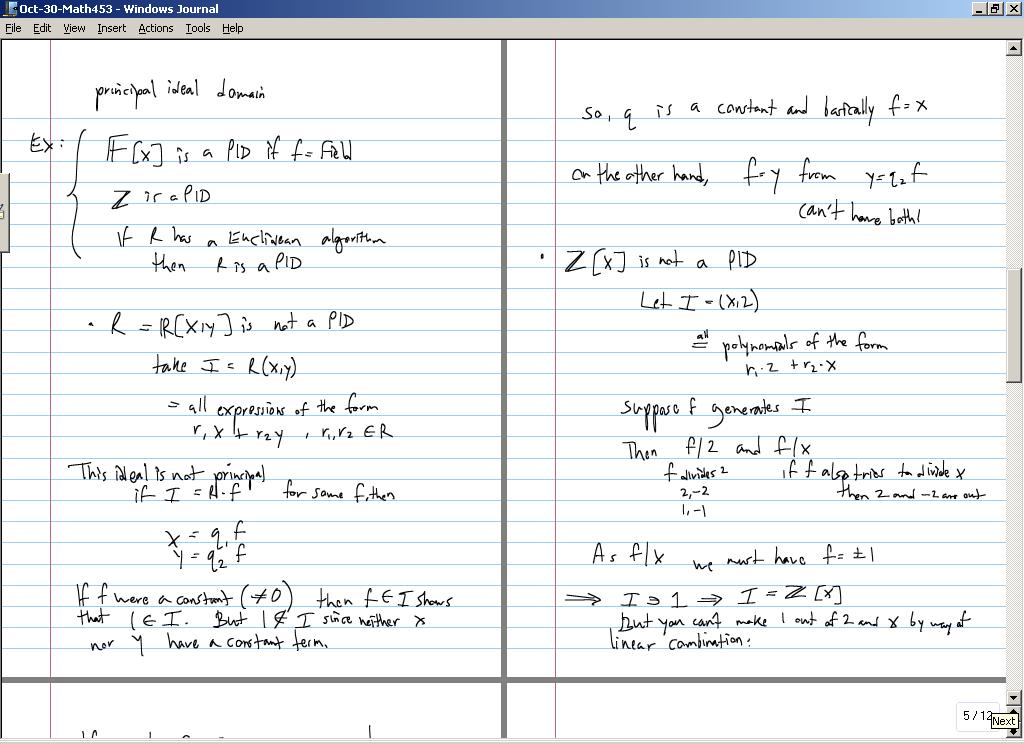 Oct-30-Math453 - Windows Journal
File Edit View Insert Actions Tools Help
principal ideal domain
Ex:
F[x] is a PID if f = Field
Z is a PID
If R has a Euclidean algorithm
then R is a PID
• R = R[x,y] is not a PID
take I = R(x,y)
= all expressions of the form
r, x + r2 y , r1, r2 ∈ R
This ideal is not principal
if I = R·f for some f, then
x = q1 f
y = q2 f
If f were a constant (≠0) then f ∈ I shows
that 1 ∈ I. But 1 ∉ I since neither x
nor y have a constant term.
so, q is a constant and basically f = x
on the other hand, f = y from y = q2 f
can't have both!
• Z[x] is not a PID
Let I = (x,2)
= all polynomials of the form
r1·2 + r2·x
suppose f generates I
Then f/2 and f/x
f divides 2 if f also tries to divide x
2,-2 then 2 and -2 are out
1,-1
As f/x we must have f = ±1
⟹ I ∋ 1 ⟹ I = Z[x]
But you can't make 1 out of 2 and x by way of
linear combination:
5 / 12
Next